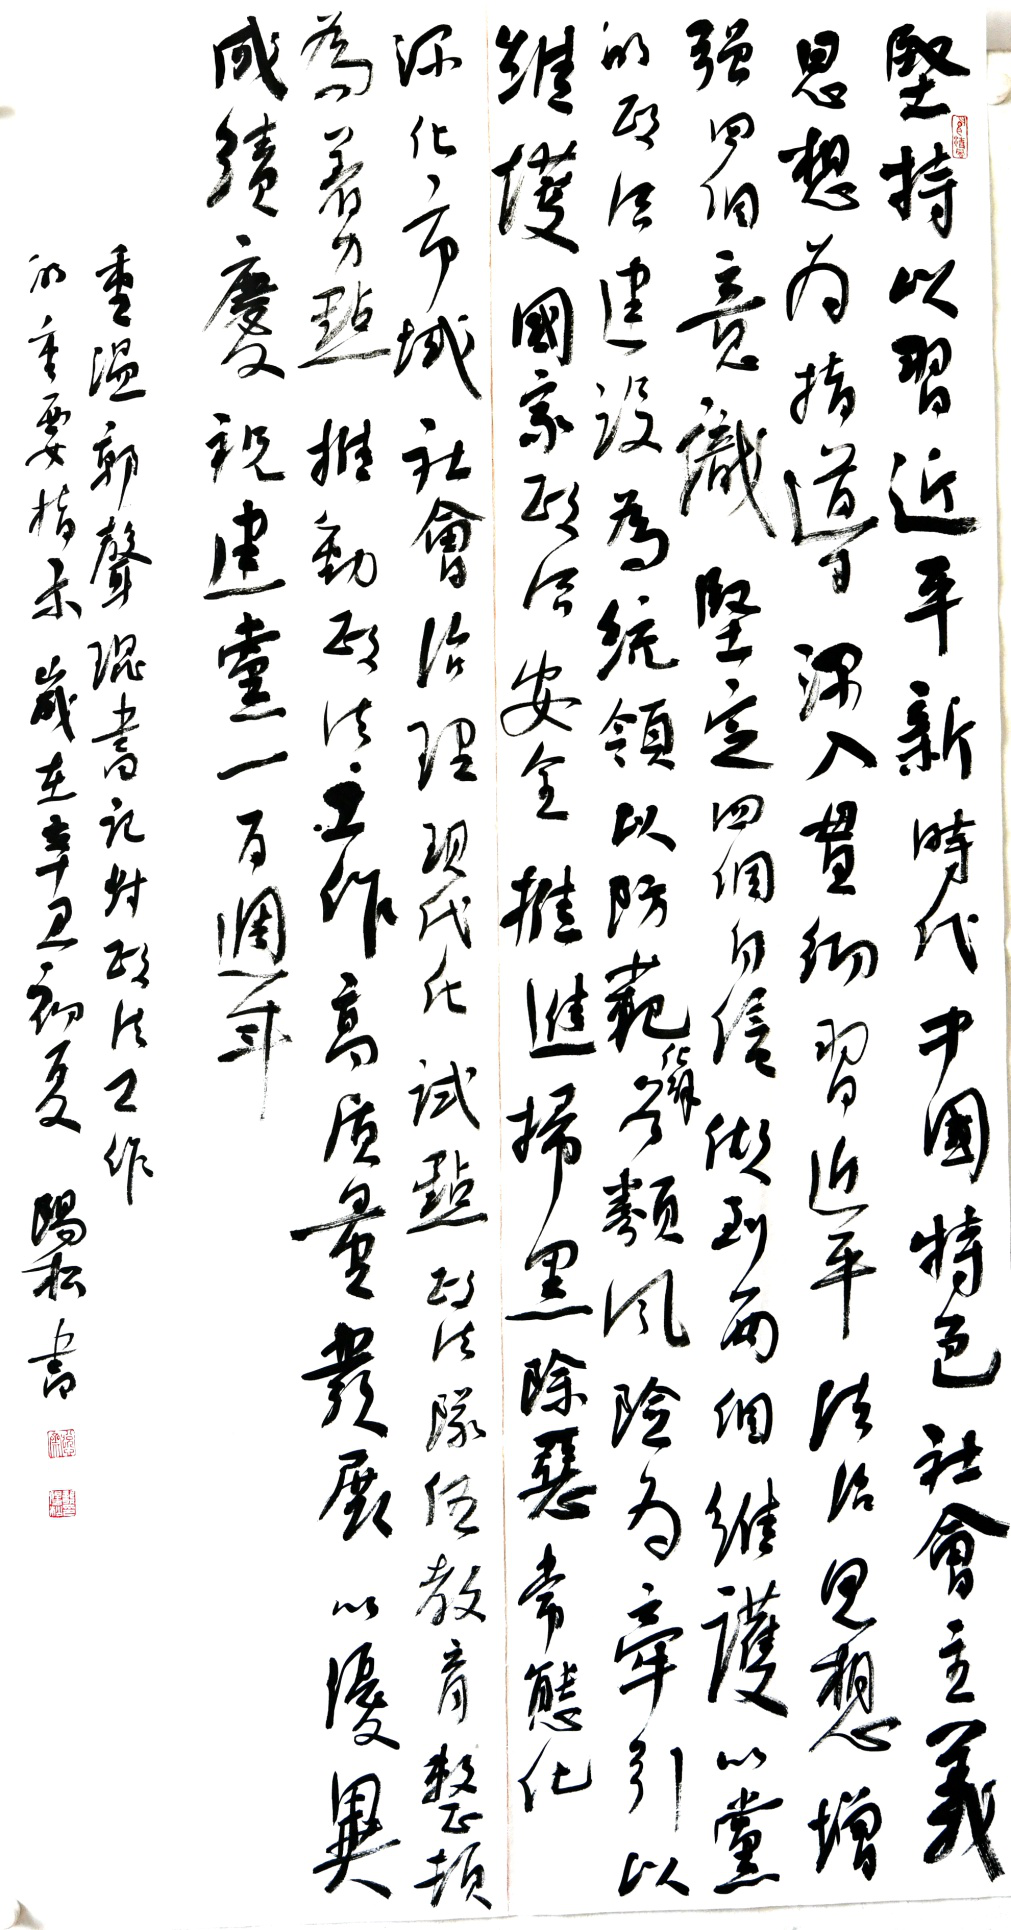 堅持以習近平新時代中國特色社會主義
思想为指導深入貫彻習近平法治思想增
强四個意識堅定四個自信做到两個維護以黨
的政治建设為統領以防範化解各類风险为牽引以
維護國家政治安全推進掃黑除惡常態化
深化市域社會治理現代化试點政法隊伍教育整頓
為着力點推動政法工作高质量發展以優異
成績慶祝建黨一百週年
重温郭聲琨書记对政法工作
的重要指示歲在辛丑初夏陽松書